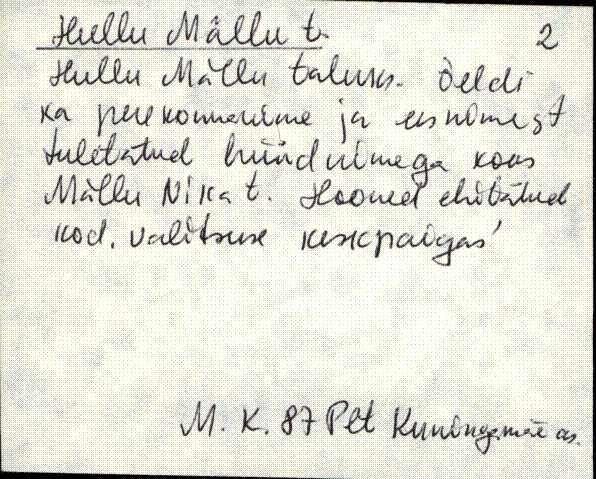 Hullu Mällu t. 2
Hullu Mällu talus. Öeldi
ka perekonnanime ja eesnimest
tuletatud hüüdnimega koos
Mällu Nika t. Hooned ehitatud
kod. valitsuse keskpaigas'
M. K. 87 Plt Kuningamäe as.